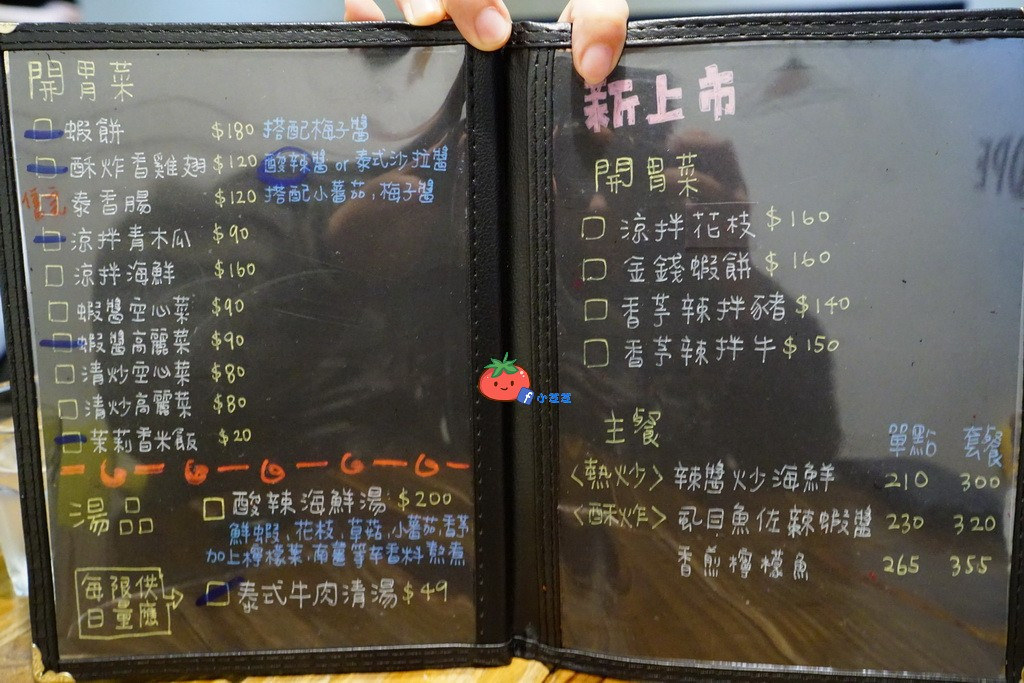 開胃菜
蝦餅 $180 搭配梅子醬
酥炸香雞翅 $120 酸辣醬 or 泰式沙拉醬
泰香腸 $120 搭配小蕃茄,梅子醬
涼拌青木瓜 $90
涼拌海鮮 $160
蝦醬空心菜 $90
蝦醬高麗菜 $90
清炒空心菜 $80
清炒高麗菜 $80
茉莉香米飯 $20
湯品
酸辣海鮮湯 $200
鮮蝦、花枝、草菇、小蕃茄、香芋
加上檸檬葉、南薑等辛香料熬煮
每日限量供應
泰式牛肉清湯 $49
小荳荳
新上市
開胃菜
涼拌花枝 $160
金錢蝦餅 $160
香芋辣拌豬 $140
香芋辣拌牛 $150
主餐 單點 套餐
<熱炒> 辣醬炒海鮮 210 300
<酥炸> 虱目魚佐辣蝦醬 230 320
香煎檸檬魚 265 355